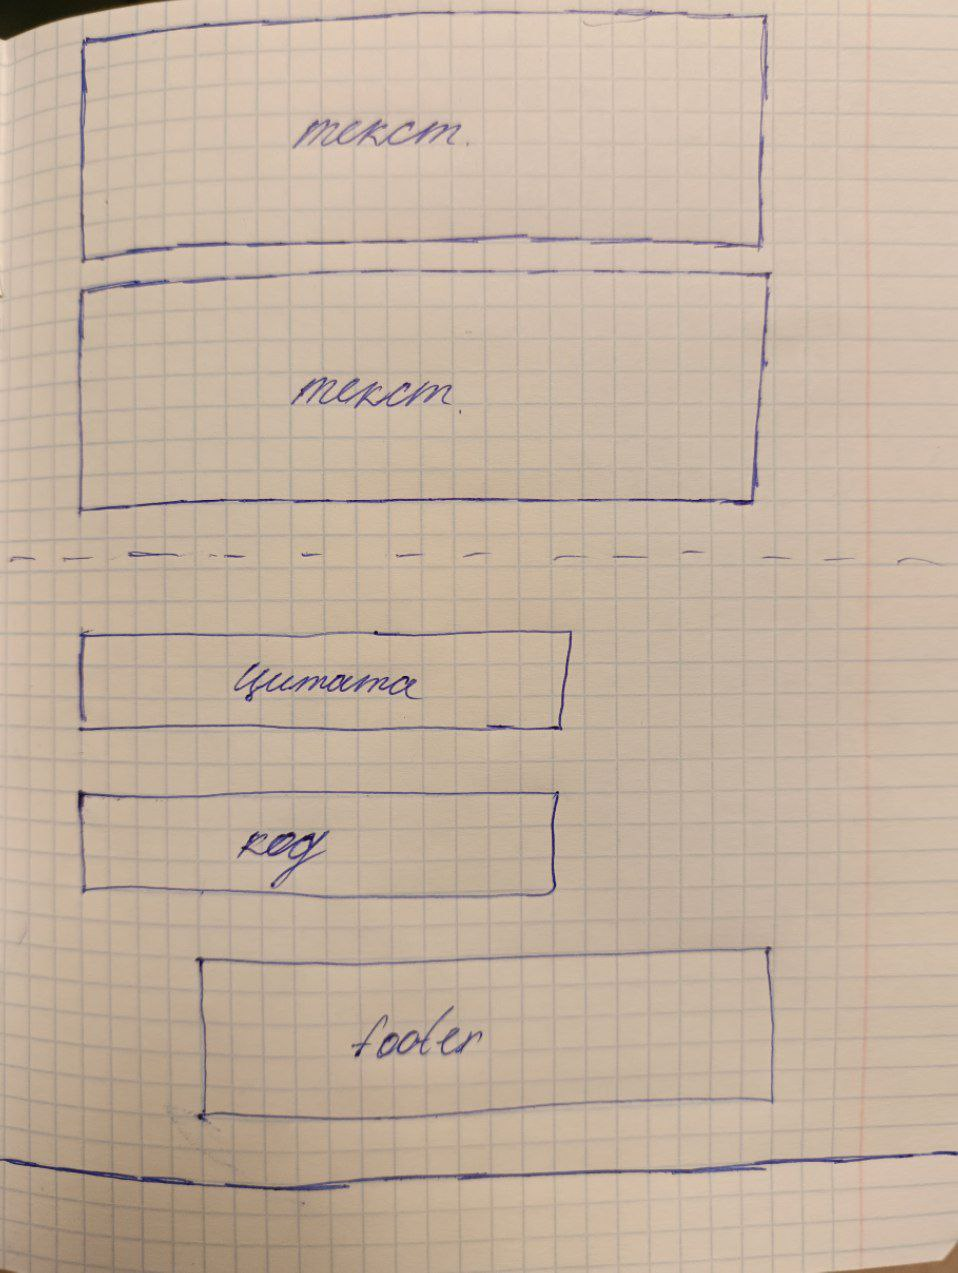 текст.
текст.
цитата
код
footer